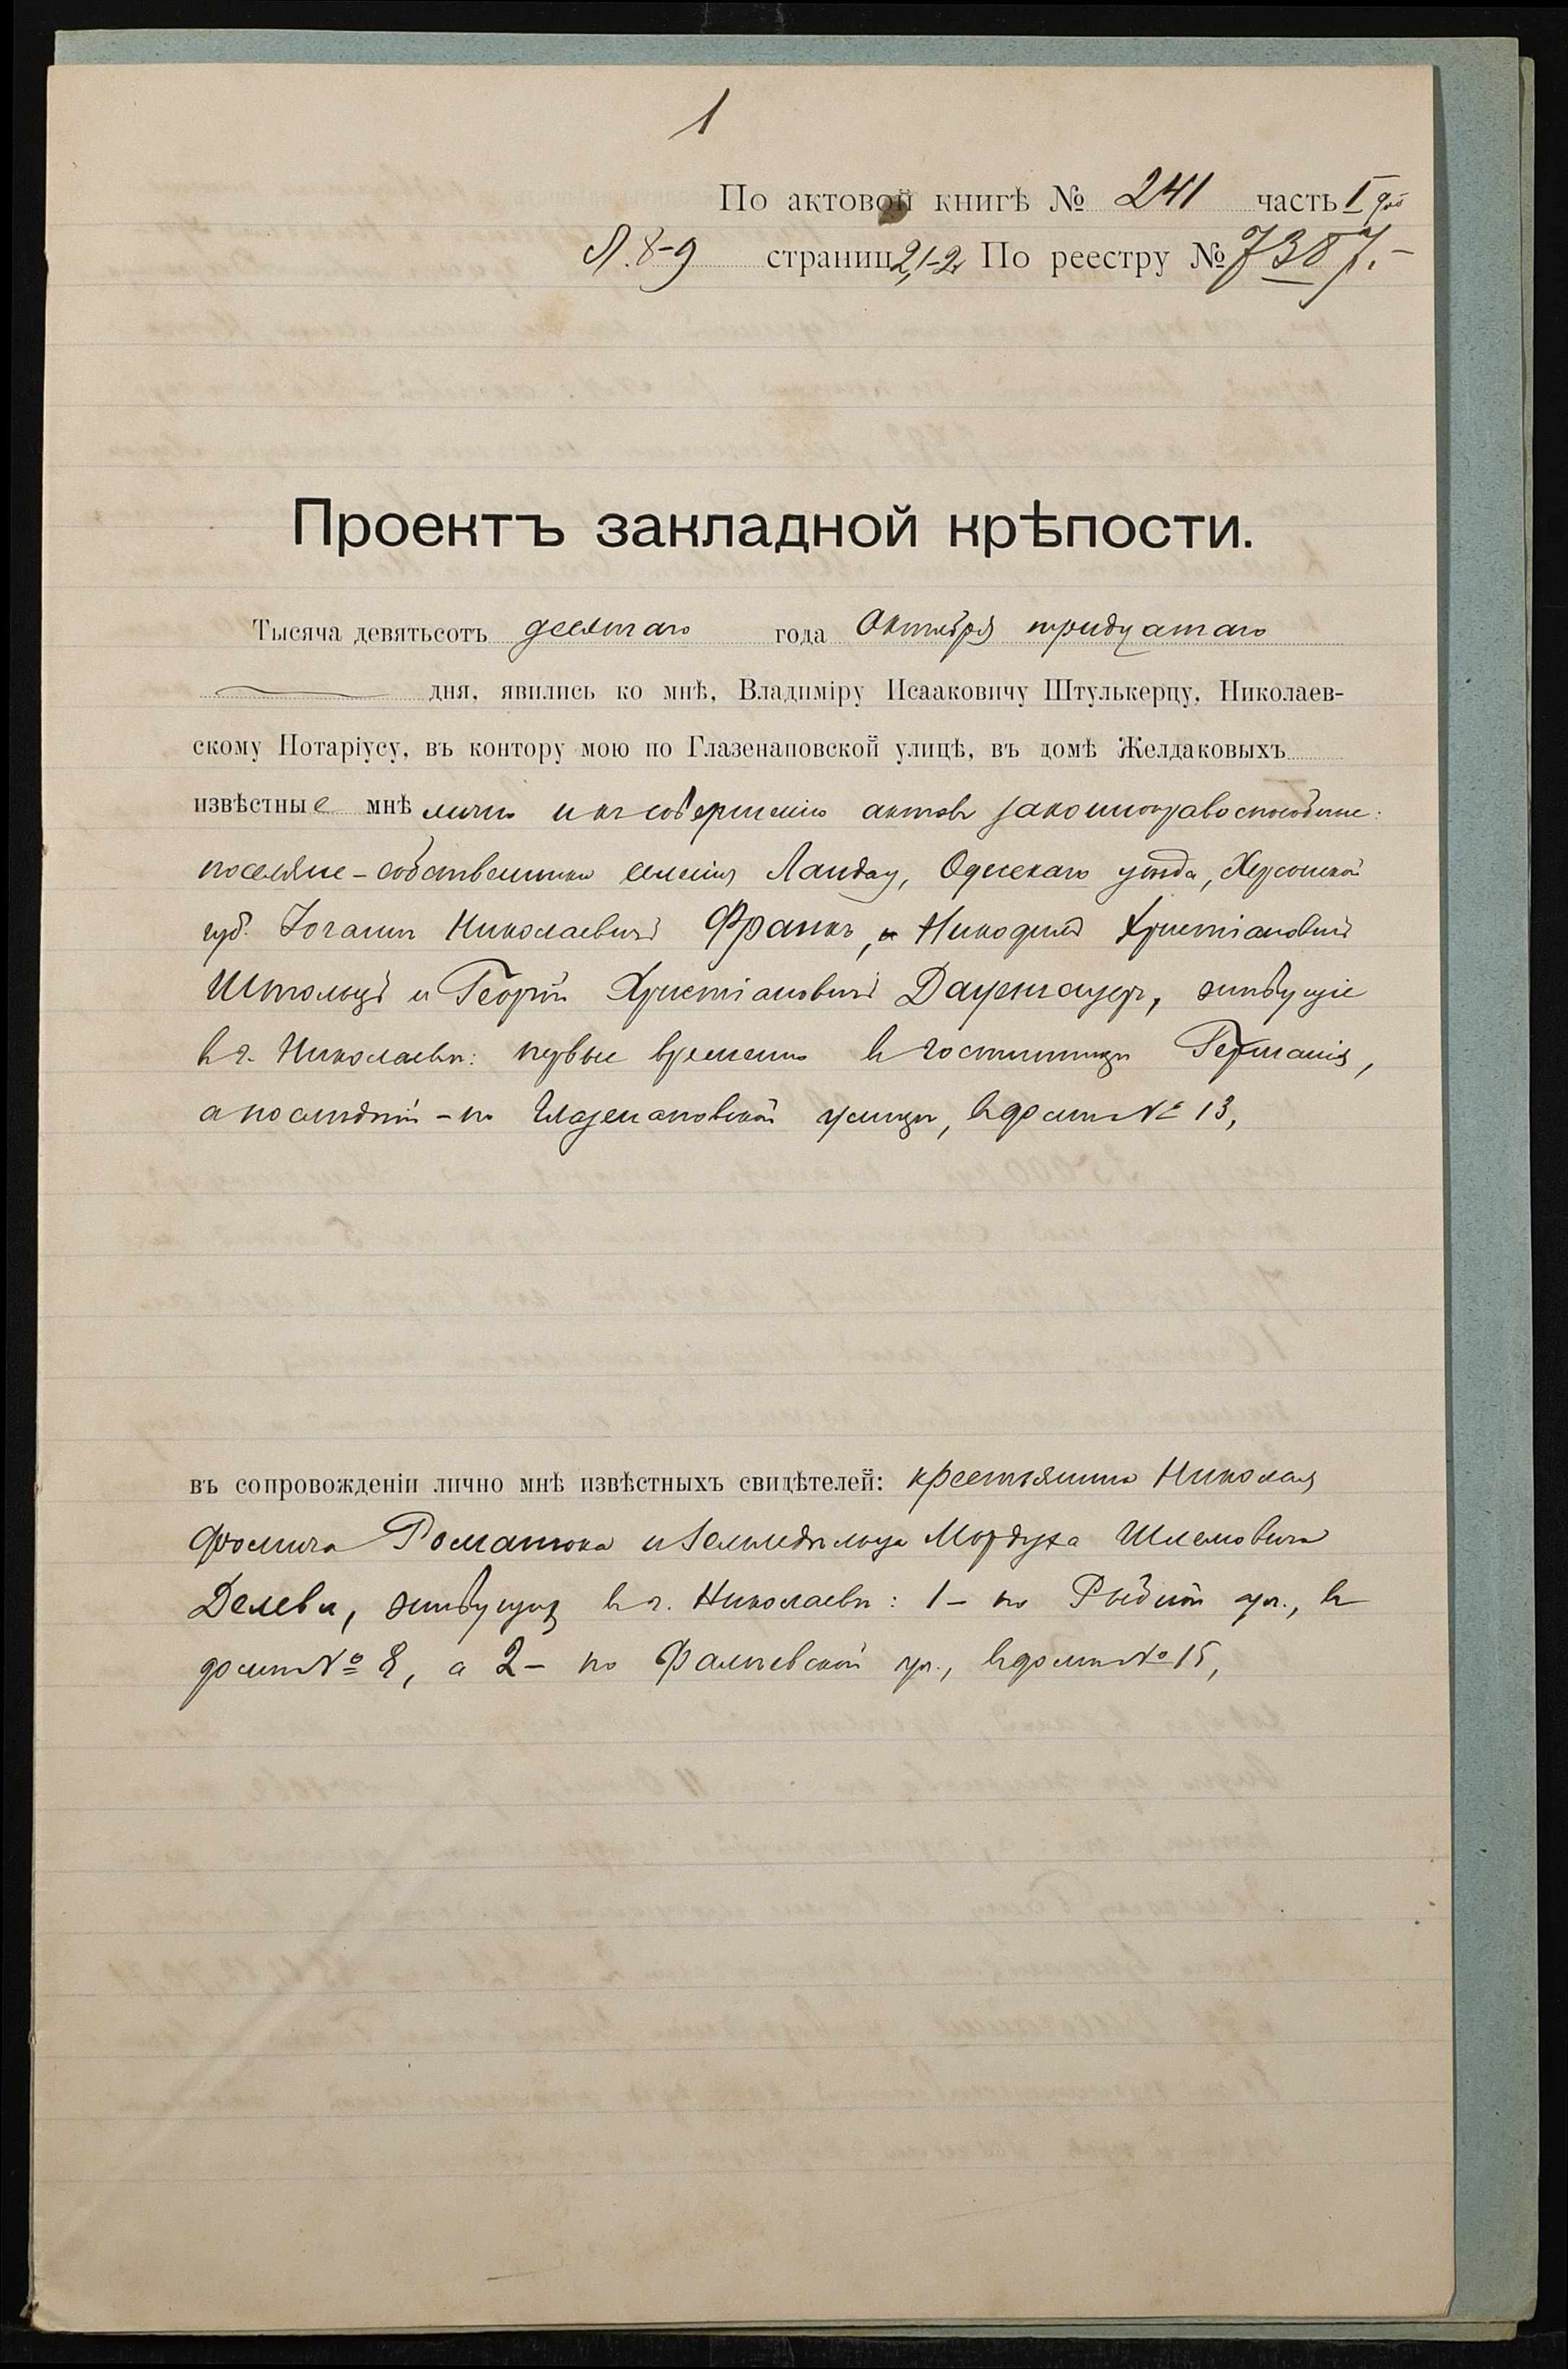 1
По актовой книгѣ № 241 часть I
Л. 8-9 страниц 2,1-2 По реестру № 7387.-
Проектъ закладной крѣпости.
Тысяча девятьсотъ десятаго года Октября тридцатаго
дня, явились ко мнѣ, Владиміру Исааковичу Штулькерцу, Николаев-
скому Нотаріусу, въ контору мою по Глазенаповской улицѣ, въ домѣ Желдаковыхъ
извѣстные мнѣ лично и къ совершенію актовъ законноправоспособные:
поселяне-собственники селенія Ландау, Одесскаго уѣзда, Херсонской
губ. Іоганнъ Николаевичъ Франкъ, и Никодимъ Христіановичъ
Штольцъ и Георгій Христіановичъ Дауенгауеръ, живущіе
въ г. Николаевѣ: первые временно въ гостинницѣ Германія,
а послѣдній - по Глазенаповской улицѣ, въ домѣ № 13,
въ сопровожденіи лично мнѣ извѣстныхъ свидѣтелей: крестьянина Николая
Фомича Романюка и Земледѣльца Мордуха Шлемовича
Делева, живущихъ въ г. Николаевѣ: 1- по Рыбной ул., въ
домѣ № 8, а 2- по Фалѣевской ул., въ домѣ № 15,